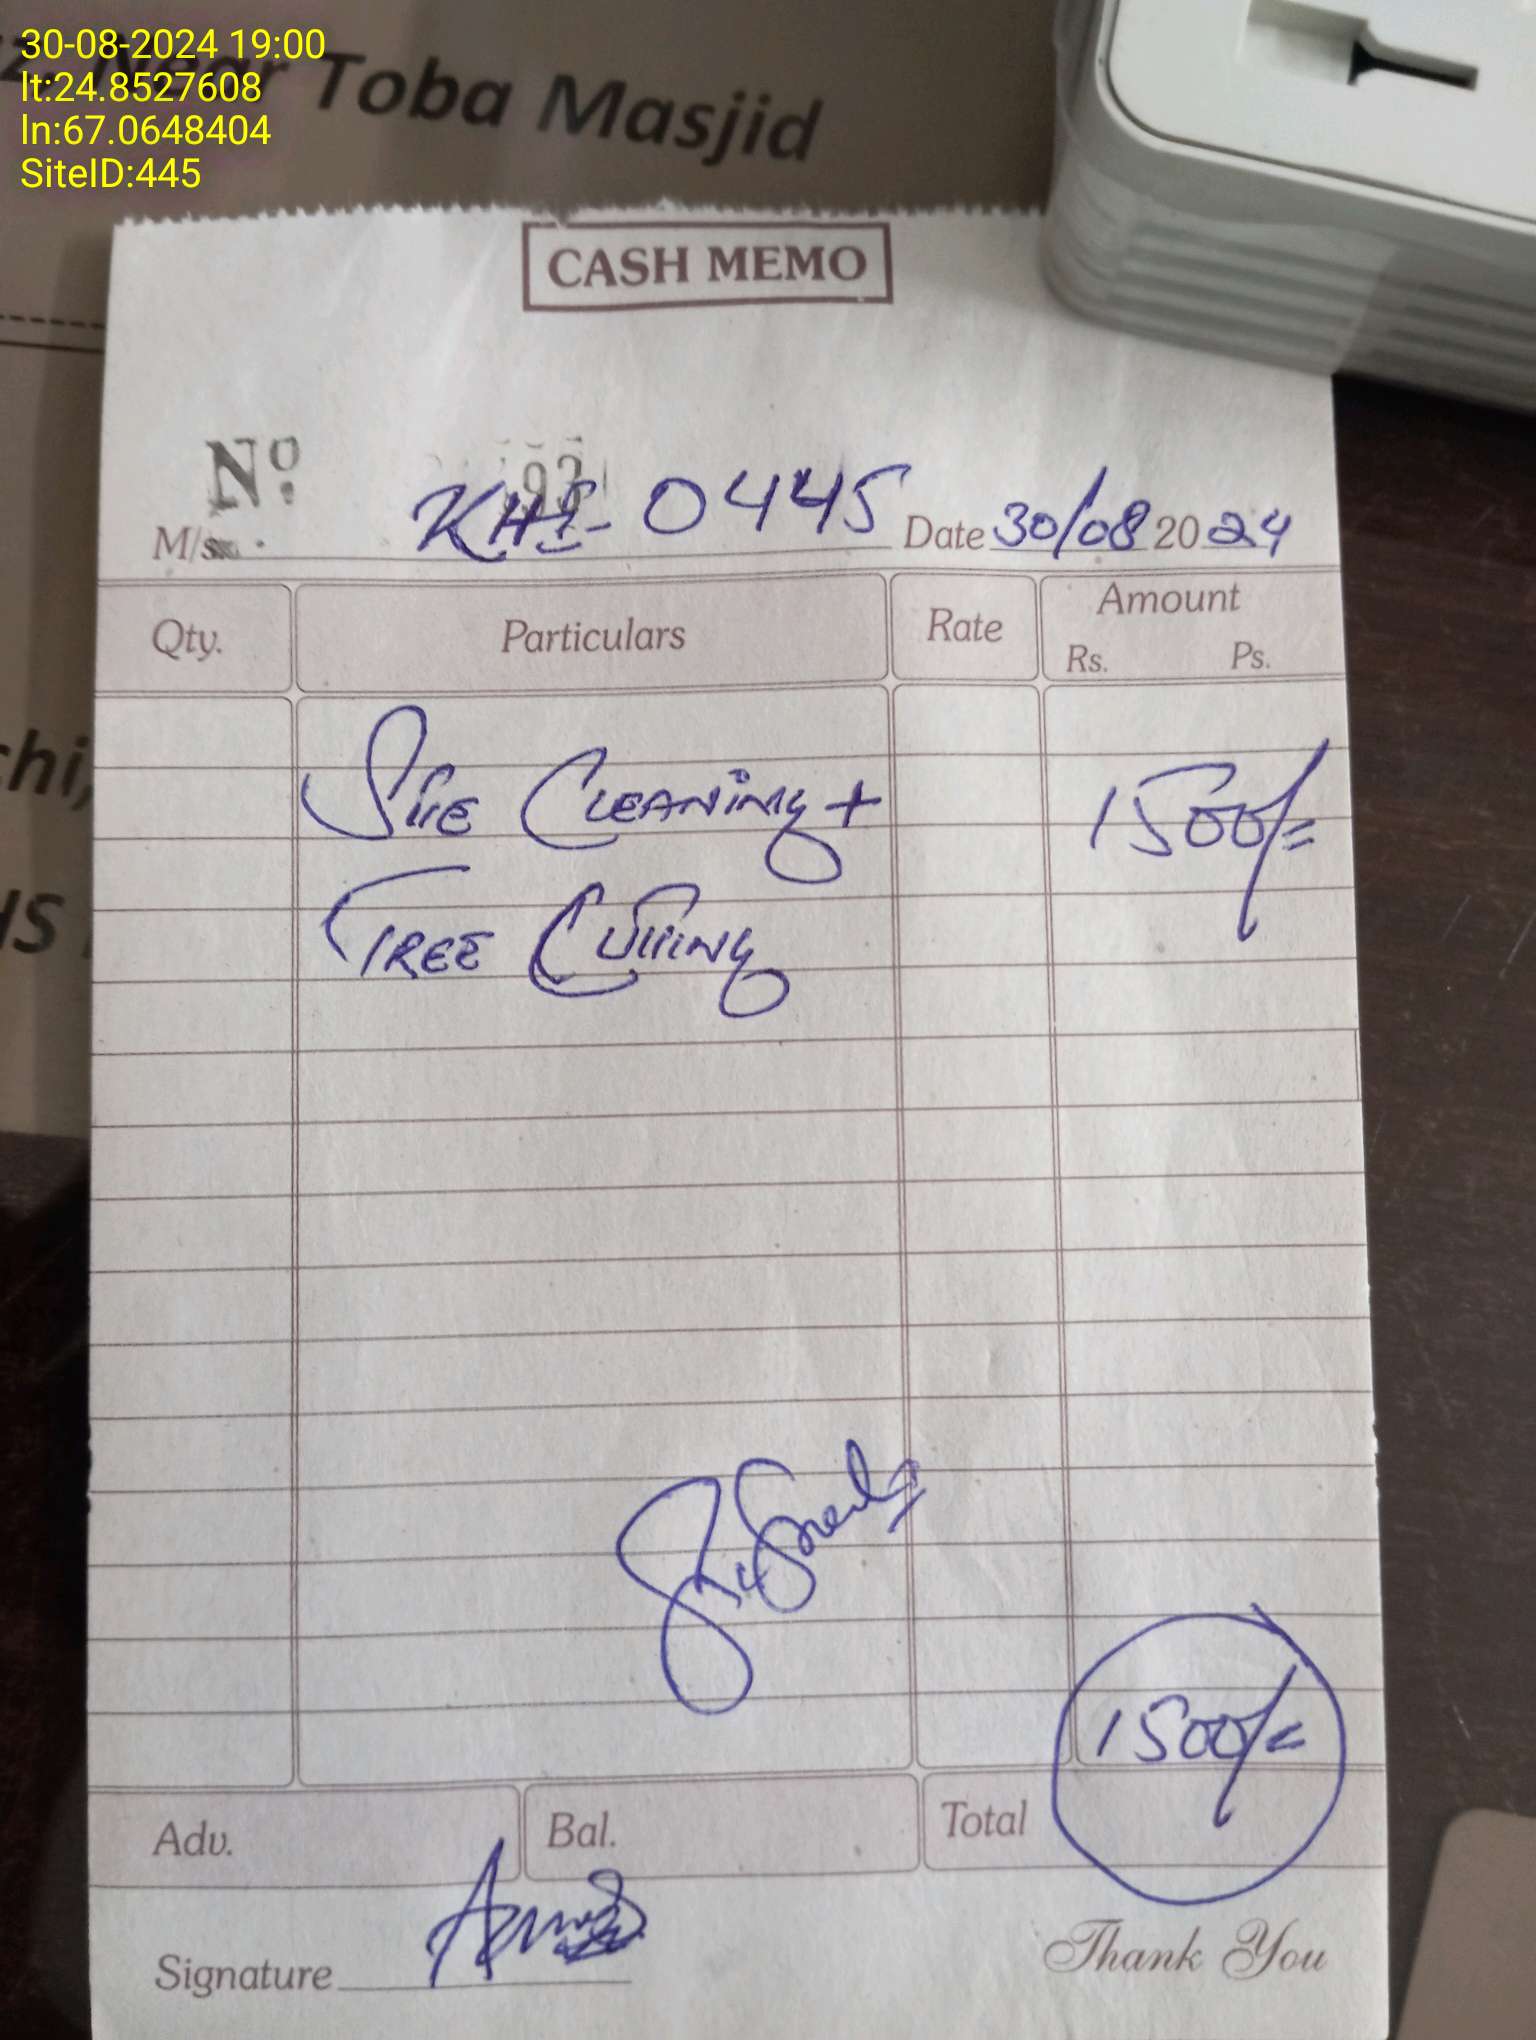 30-08-2024 19:00
lt:24.8527608
ln:67.0648404
SiteID:445
Near Toba Masjid
CASH MEMO
No.
M/s. KHI-0445 Date 30/08 2024
Qty. Particulars Rate Amount
Rs. Ps.
Site Cleaning + 1500/=
Tree Cutting
1500/=
Adv. Bal. Total
Signature
Thank You